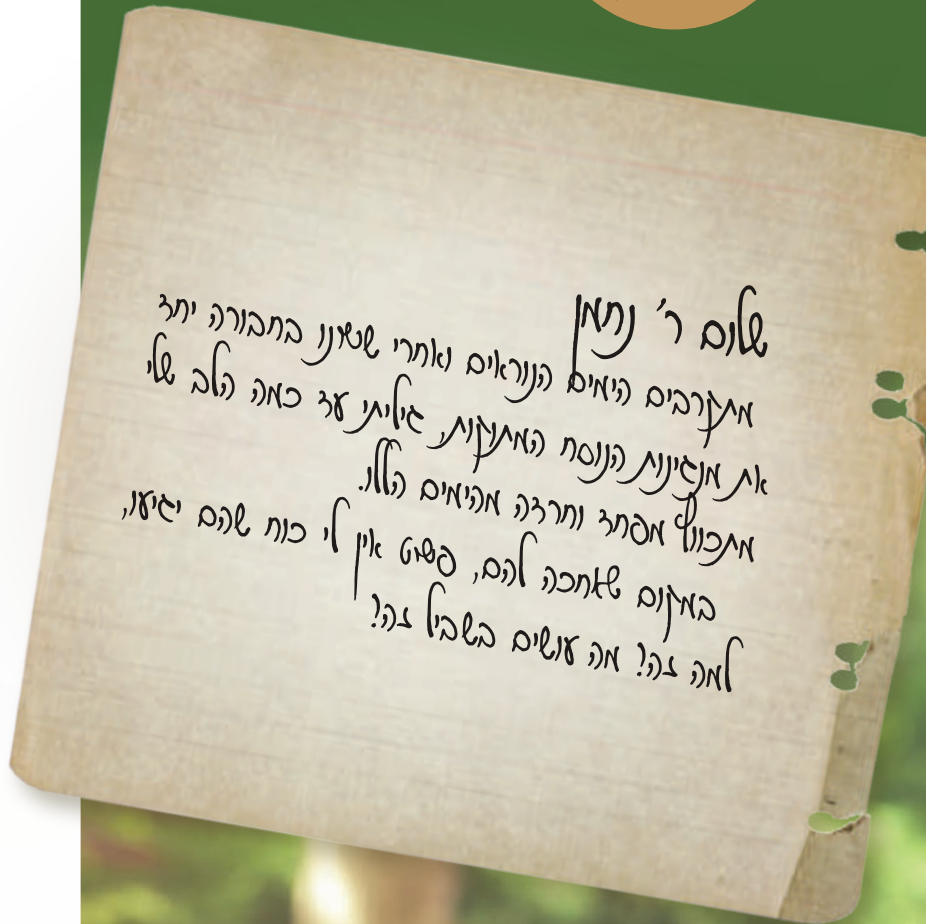 שלום ר' נחמן
מתקרבים הימים הנוראים ואחרי ששינו בחבורה יחד
את מנגינות הנוסח המתוקות, גיליתי עד כמה הלב שלי
מתכווץ מפחד וחרדה מהימים הללו.
במקום שאחכה להם, פשוט אין לי כוח שהם יגיעו,
למה זה? מה עושים בשביל זה?